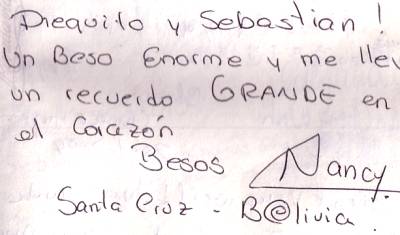 Dieguito y Sebastian!
Un Beso Enorme y me llev
un recuerdo GRANDE en
el Corazón
Besos Nancy.
Santa Cruz - B@livia.